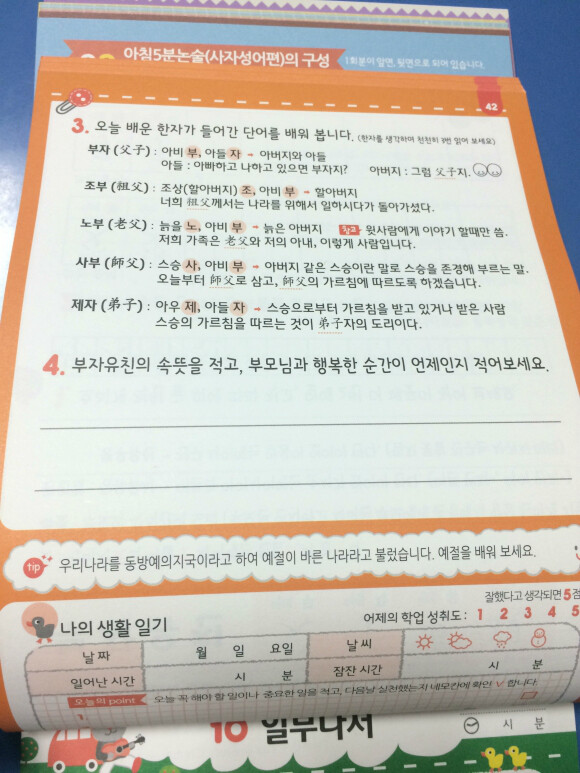 아침5분논술(사자성어편)의 구성
1회분이 앞면, 뒷면으로 되어 있습니다.
42
3. 오늘 배운 한자가 들어간 단어를 배워 봅니다. (한자를 생각하며 천천히 3번 읽어 보세요)
부자 (父子) : 아비 부, 아들 자 → 아버지와 아들
아들 : 아빠하고 나하고 있으면 부자지? 아버지 : 그럼 父子지.
조부 (祖父) : 조상(할아버지) 조, 아비 부 → 할아버지
너희 祖父께서는 나라를 위해서 일하시다가 돌아가셨다.
노부 (老父) : 늙을 노, 아비 부 → 늙은 아버지 참고 윗사람에게 이야기 할때만 씀.
저희 가족은 老父와 저의 아내, 이렇게 사람입니다.
사부 (師父) : 스승 사, 아비 부 → 아버지 같은 스승이란 말로 스승을 존경해 부르는 말.
오늘부터 師父로 삼고, 師父의 가르침에 따르도록 하겠습니다.
제자 (弟子) : 아우 제, 아들 자 → 스승으로부터 가르침을 받고 있거나 받은 사람
스승의 가르침을 따르는 것이 弟子자의 도리이다.
4. 부자유친의 속뜻을 적고, 부모님과 행복한 순간이 언제인지 적어보세요.
tip 우리나라를 동방예의지국이라고 하여 예절이 바른 나라라고 불렀습니다. 예절을 배워 보세요.
잘했다고 생각되면 5점
나의 생활 일기 어제의 학업 성취도 : 1 2 3 4 5
날 짜 월 일 요일 날 씨
일어난 시간 시 분 잠잔 시간 시 분
오늘의 point 오늘 꼭 해야 할 일이나 중요한 일을 적고, 다음날 실천했는지 네모칸에 확인 V 합니다.
1
시 분